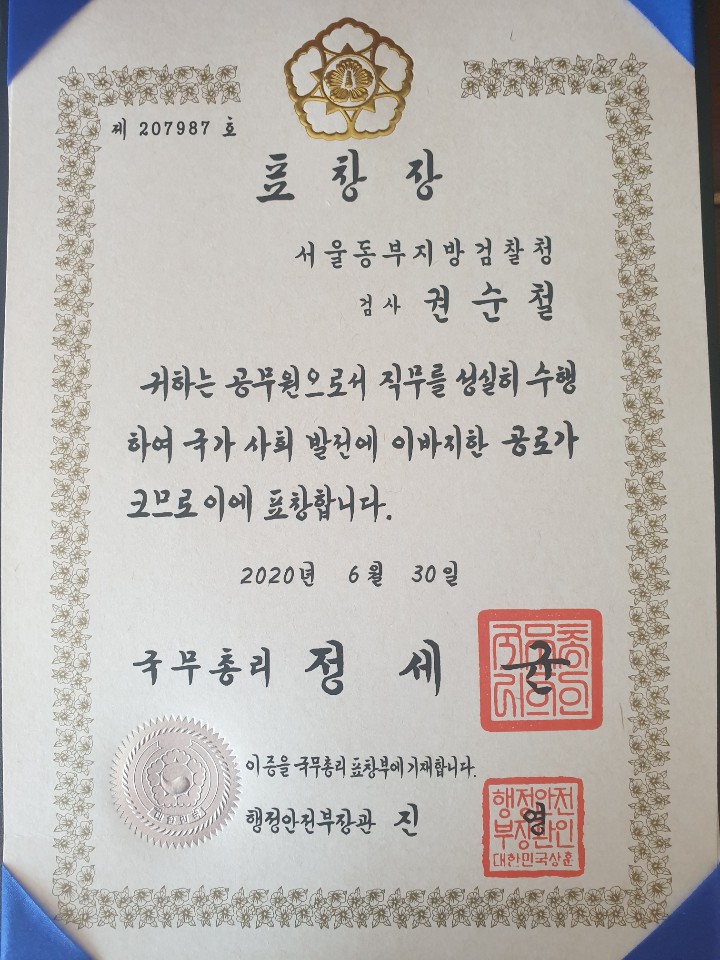 제 207987 호
표창장
서울동부지방검찰청
검사 권순철
귀하는 공무원으로서 직무를 성실히 수행
하여 국가 사회 발전에 이바지한 공로가
크므로 이에 표창합니다.
2020년 6월 30일
국무총리 정세균
국무총리의인
이 증을 국무총리 표창부에 기재합니다.
행정안전부장관 진영
행정안전
부장관인
대한민국상훈